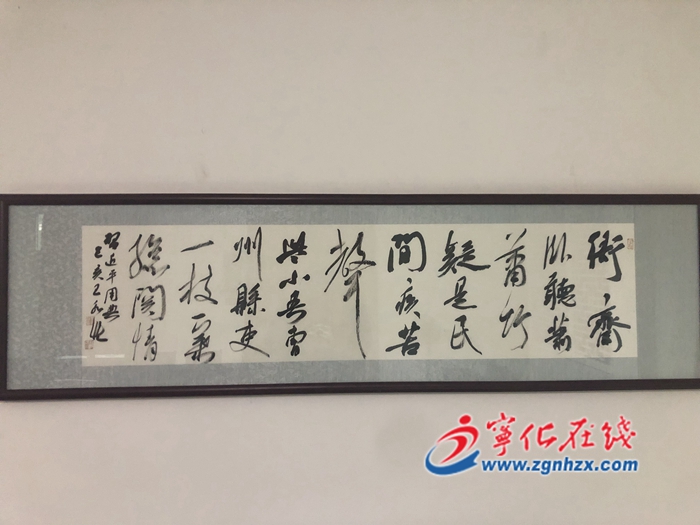 衙齋
臥聽蕭
蕭竹
疑是民
間疾苦
聲
些小吾曹
州縣吏
一枝一葉
總關情
習近平用典
己亥
寧化在线
www.zgnhzx.com